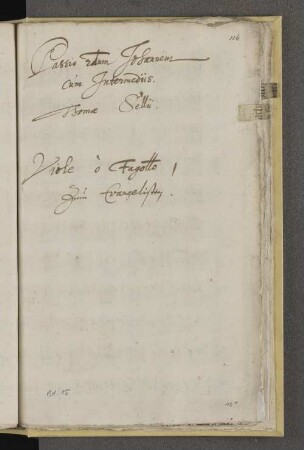 116
Passio secundum Johannem
cum Intermediis.
Thomæ Sellii.
Viole ô Fagotto
zum Evangelisten.